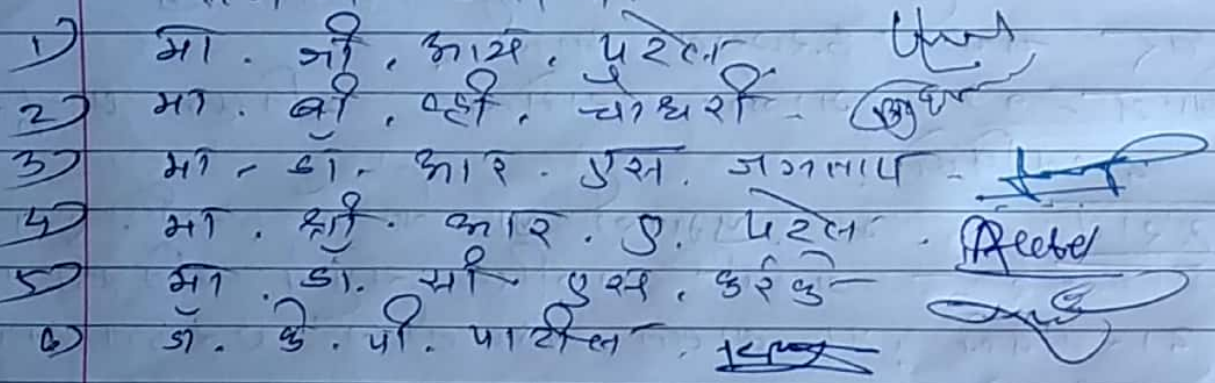 1) मा. जी. आय. पटेल
2) मा. बी. व्ही. चौधरी -
3) मा - डॉ. आर. एस. जगताप -
4) मा. श्री. आर. ए. पटेल.
5) मा. डॉ. सी. एस. करंके
6) डॉ. के. पी. पाटील.